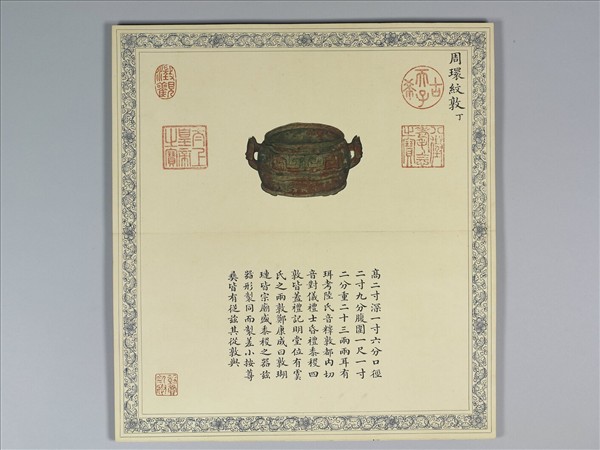 周環紋敦 丁
古希天子
八徵耄念之寶
太上皇帝之寶
高二寸深一寸六分口徑
二寸九分腹圍一尺一寸
二分重二十三兩兩耳有
珥考陸氏音釋敦都內切
音對儀禮士昏禮黍稷四
敦皆蓋禮記明堂位有虞
氏之兩敦鄭康成曰敦瑚
璉皆宗廟盛黍稷之器茲
器形製同而製差小按尊
彝皆有從茲其從敦與